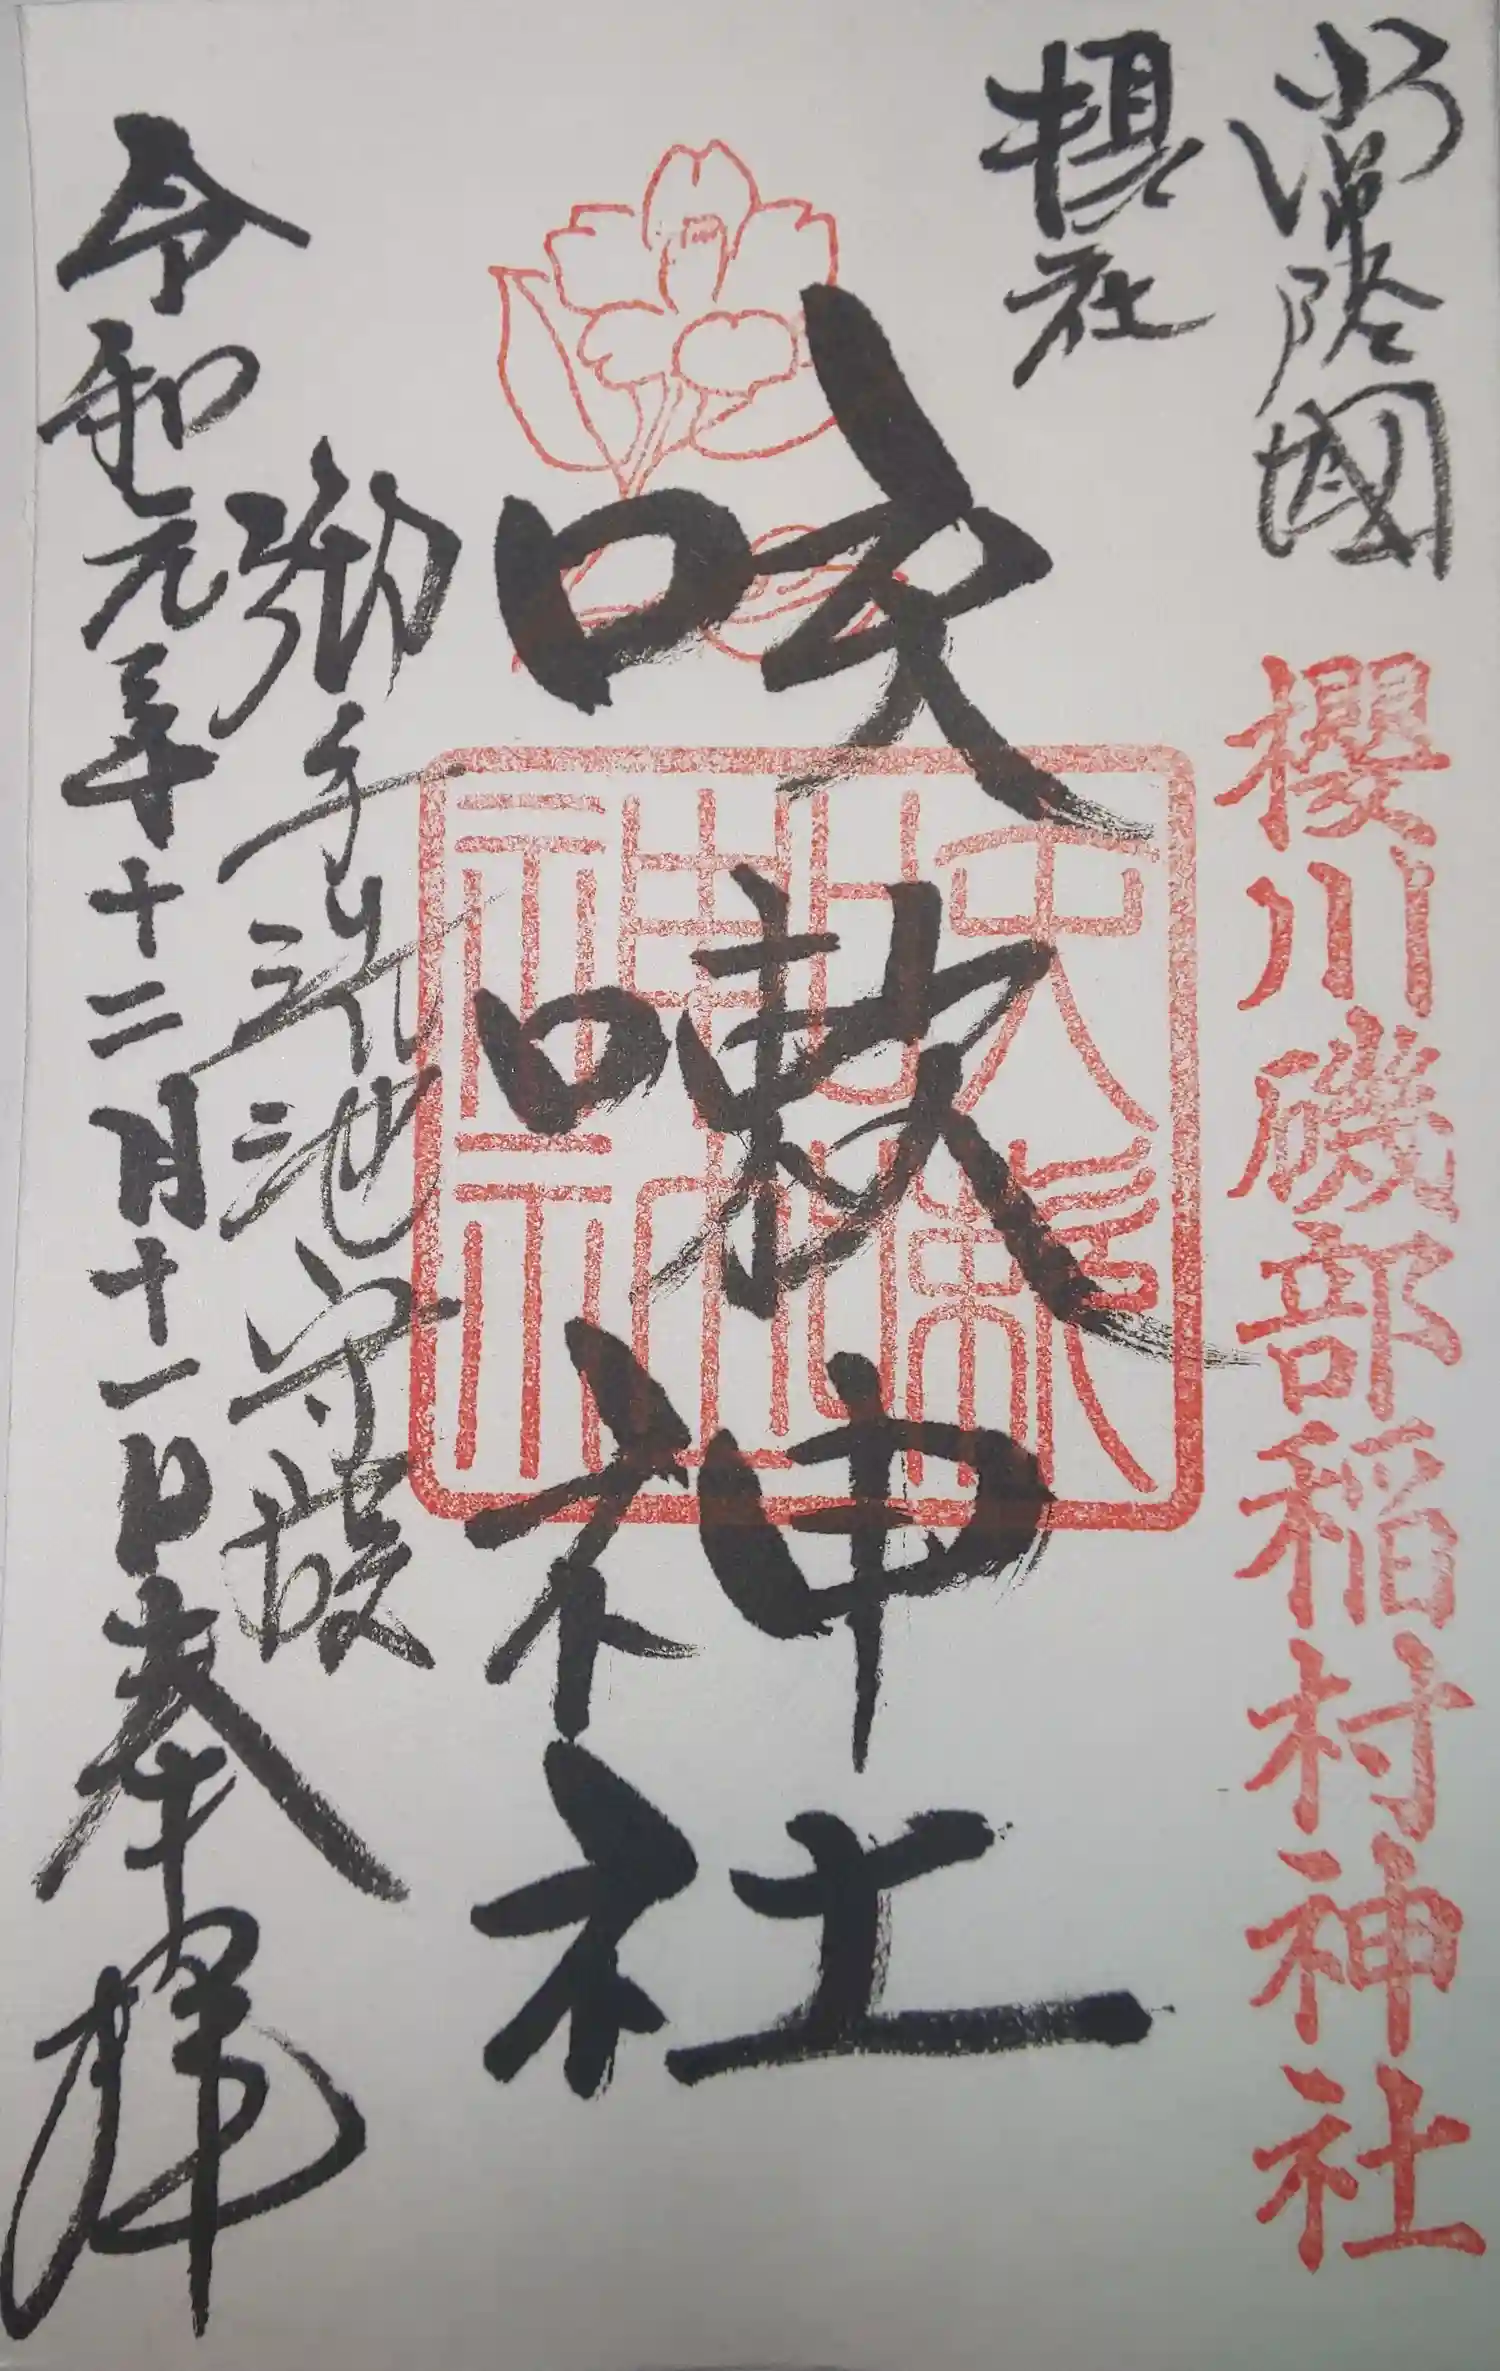 常陸國
櫻川磯部稲村神社
摂社
咳嗽神社
御手洗池守護
令和元年十二月十一日奉拝